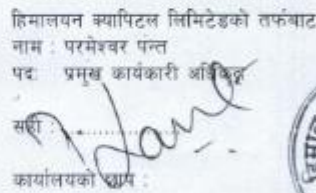 हिमालयन क्यापिटल लिमिटेडको तर्फबाट
नाम : परमेश्वर पन्त
पद: प्रमुख कार्यकारी अधिकृत
सही :............
कार्यालयको छाप :